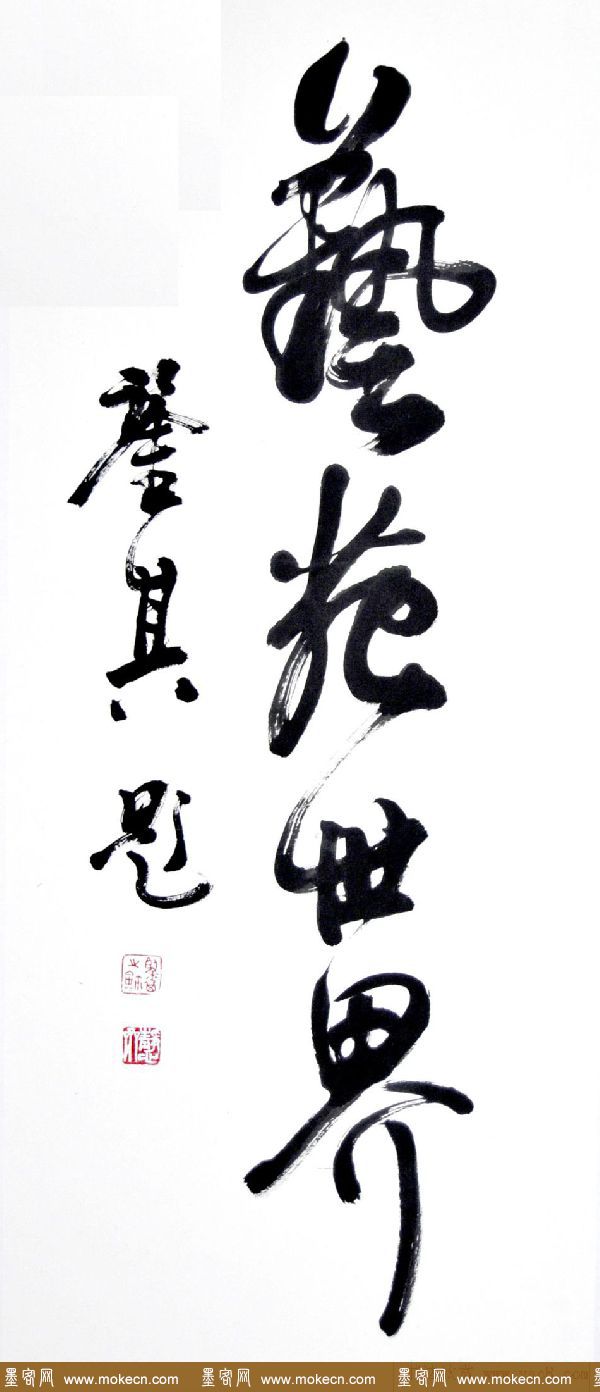 藝苑世界
其題
墨客网 - www.mokecn.com 墨客网 - www.mokecn.com 墨客网 - www.mokecn.com